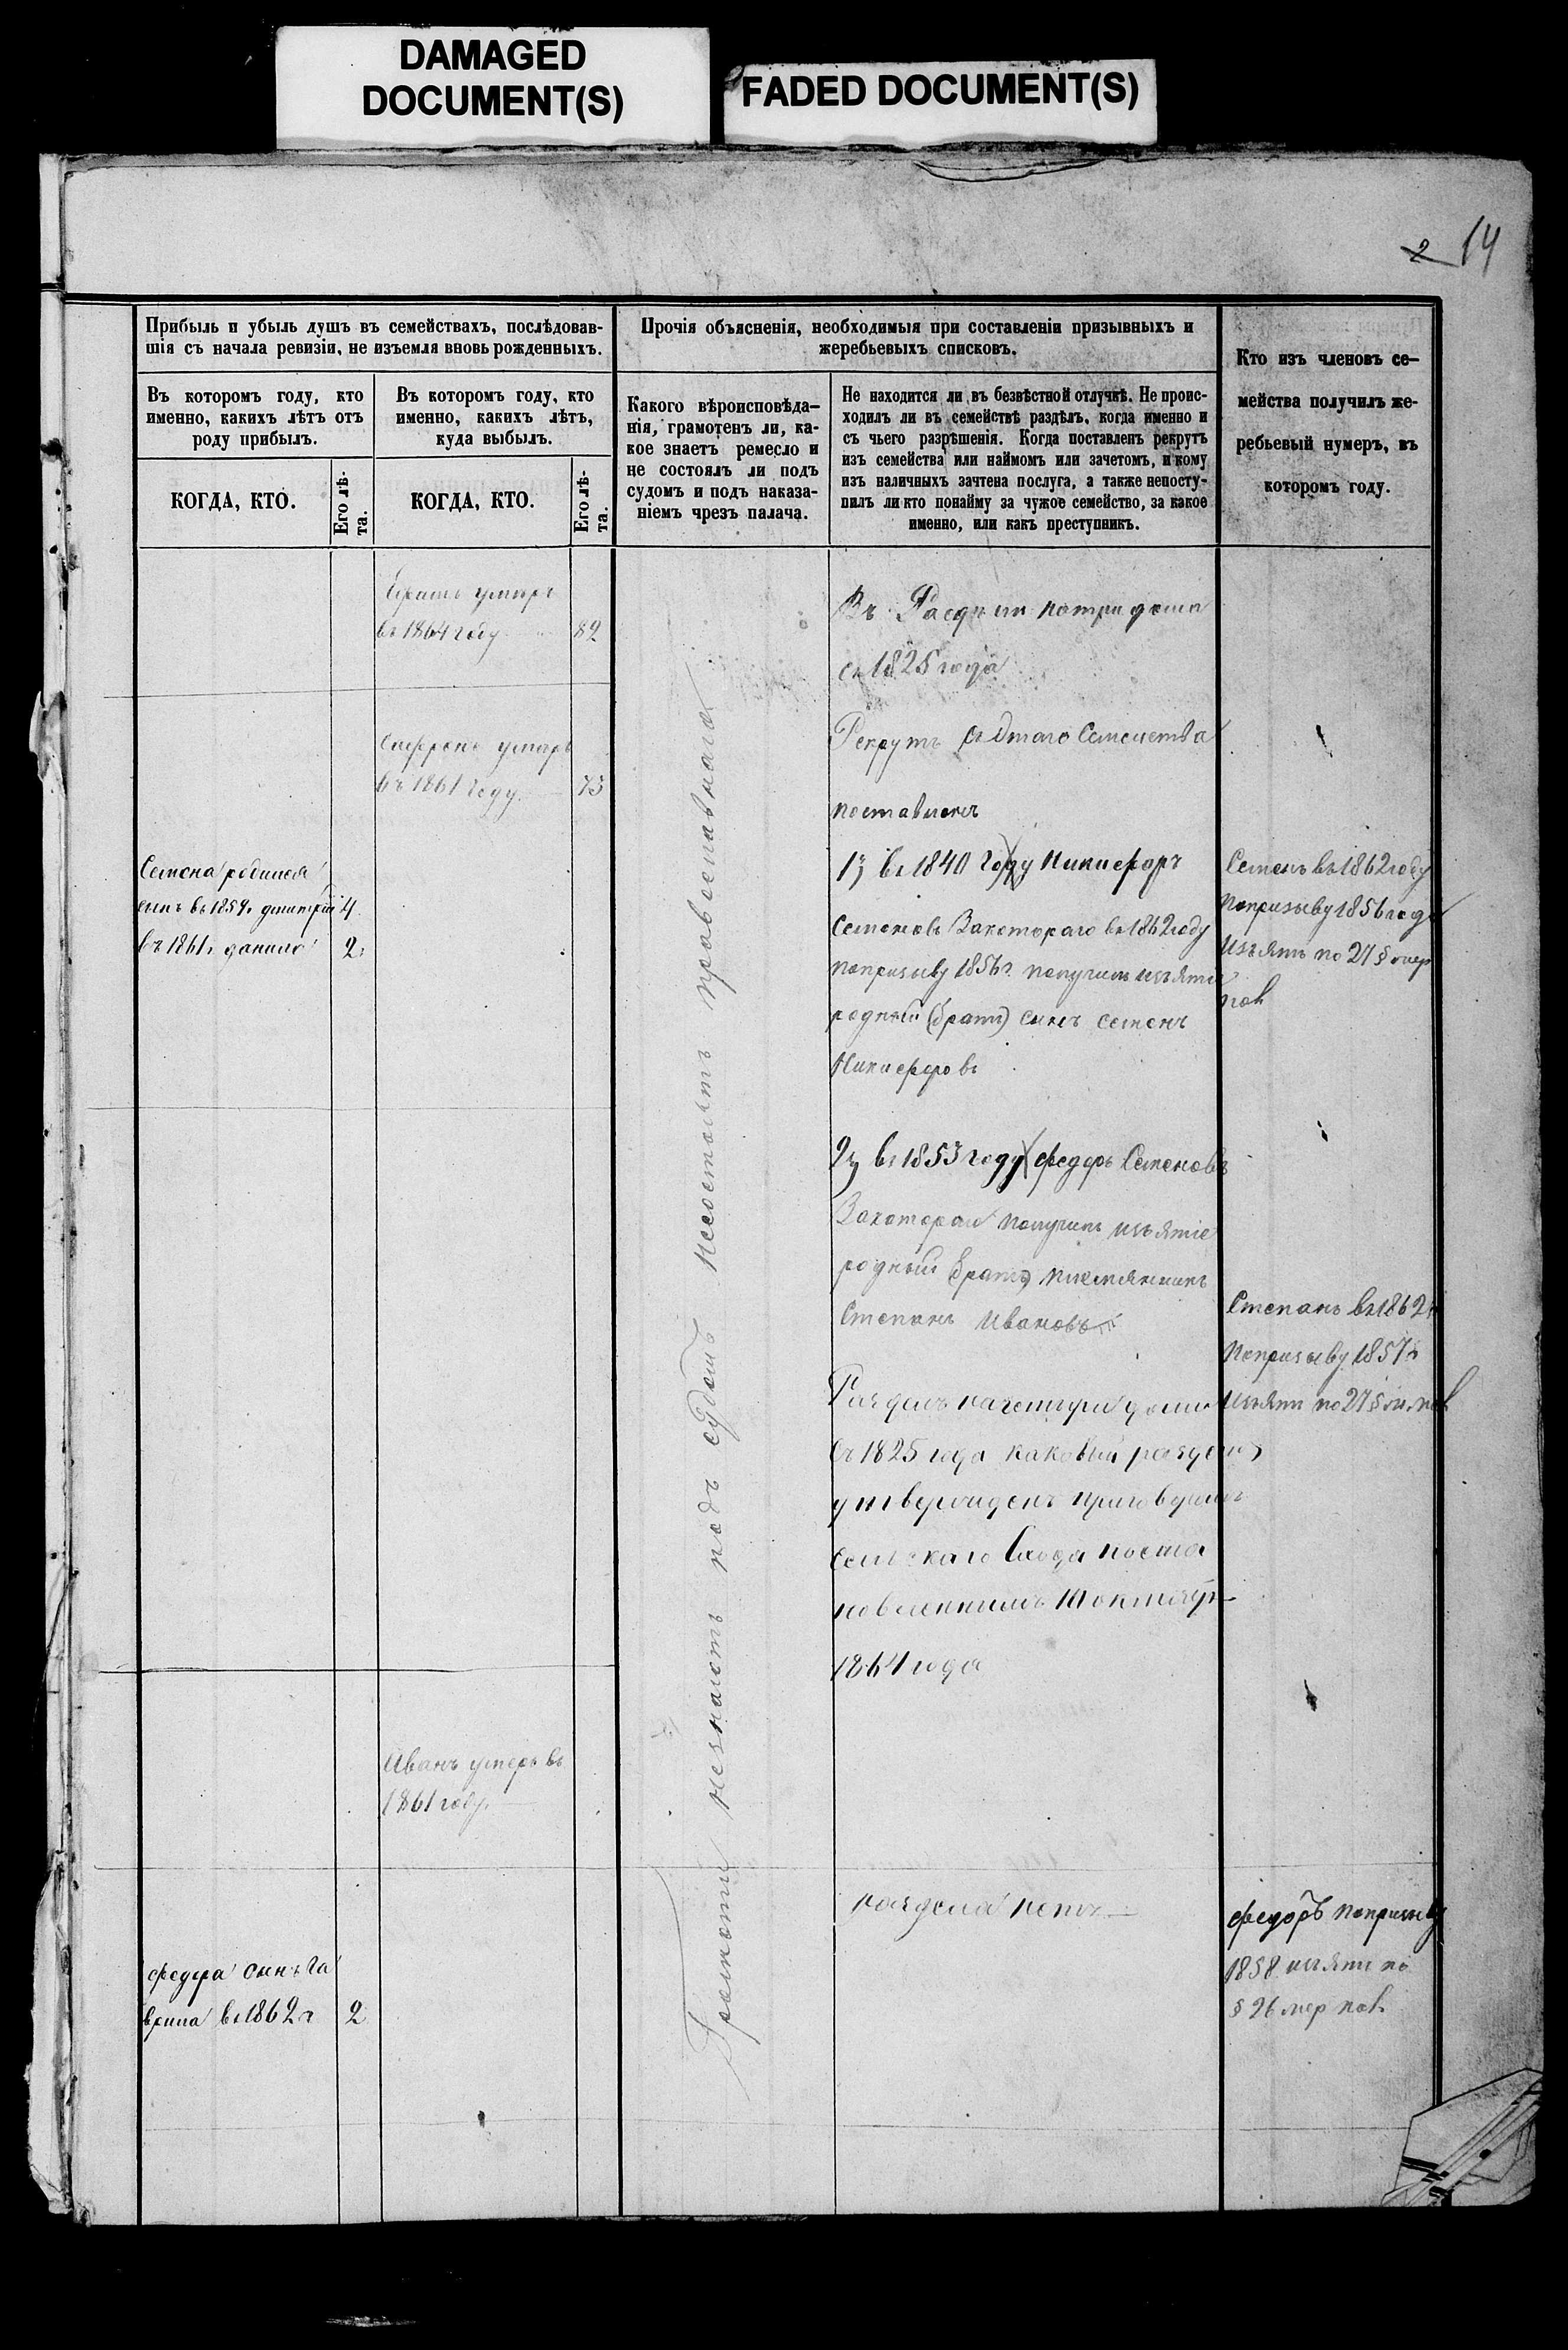 DAMAGED
DOCUMENT(S)
FADED DOCUMENT(S)
2 14
Прибыль и убыль душъ въ семействахъ, послѣдовав-
шія съ начала ревизіи, не изъемля вновь рожденныхъ.
Въ которомъ году, кто
именно, какихъ лѣтъ отъ
роду прибылъ.
КОГДА, КТО.
Его лѣ-
та.
Въ которомъ году, кто
именно, какихъ лѣтъ,
куда выбылъ.
КОГДА, КТО.
Его лѣ-
та.
Прочія объясненія, необходимыя при составленіи призывныхъ и
жеребьевыхъ списковъ.
Какого вѣроисповѣда-
нія, грамотенъ ли, ка-
кое знаетъ ремесло и
не состоялъ ли подъ
судомъ и подъ наказа-
ніемъ чрезъ палача.
Не находится ли въ безвѣстной отлучкѣ. Не проис-
ходилъ ли въ семействѣ раздѣлъ, когда именно и
съ чьего разрѣшенія. Когда поставленъ рекрутъ
изъ семейства или наймомъ или зачетомъ, и кому
изъ наличныхъ зачтена послуга, а также непосту-
пилъ ли кто понайму за чужое семейство, за какое
именно, или какъ преступникъ.
Кто изъ членовъ се-
мейства получилъ же-
ребьевый нумеръ, въ
которомъ году.
Семена родился
сынъ въ 1859г дмитрій 4
въ 1861г данило 2
федора сынъ Га
врила въ 1862г 2
умеръ
въ 1864 году 82
умеръ
въ 1861 году 73
Иванъ умеръ въ
1861 году.
Грамоты незнаютъ подъ судомъ несостоятъ православнаго
Въ на три дома
съ 1825 года
Рекрутъ съ Этаго Семейства
поставленъ
1й въ 1840 Году Никифоръ
Семеновъ Закотораго въ 1862 году
попризыву 1856г. получилъ изъятіе
родный (братъ) сынъ семенъ
Никифоровъ
2й въ 1853 году федоръ Семеновъ
Закотораго получилъ изъятіе
родный братъ племянникъ
Степанъ Ивановъ
Раздѣлъ начетыри дома
съ 1825 года каковый раздѣлъ
утвержденъ приговоромъ
Сельскаго Схода поста
новленнымъ октября
1864 года
раздела нетъ
Семенъ въ 1862 году
попризыву 1856 года
Изъятъ по 27 § мер
пол
Степанъ въ 1862г
Попризыву 1857г
изъятъ по 27 § м. пол
федоръ попризыву
1858 изъятъ по
§ 26 мер пол.